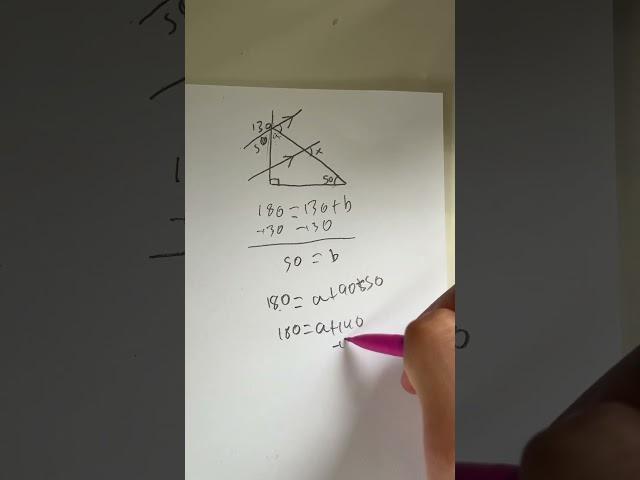 130
50
a
x
50
180 = 130 + b
-130 -130
50 = b
180 = a + 90 + 50
180 = a + 140
-1